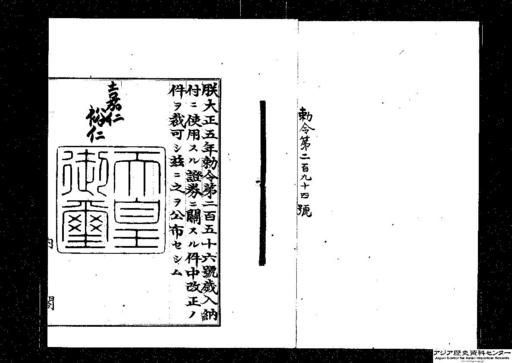 勅令第二百九十四號
朕大正五年勅令第二百五十六號歳入納
付ニ使用スル證券ニ關スル件中改正ノ
件ヲ裁可シ玆ニ之ヲ公布セシム
嘉仁
裕仁
天皇
御璽
内閣
アジア歴史資料センター
Japan Center for Asian Historical Records